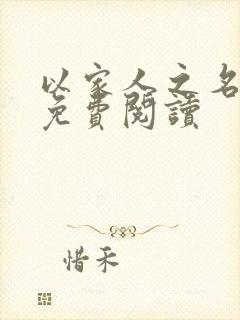 以家人之名
免費閱讀
惜禾